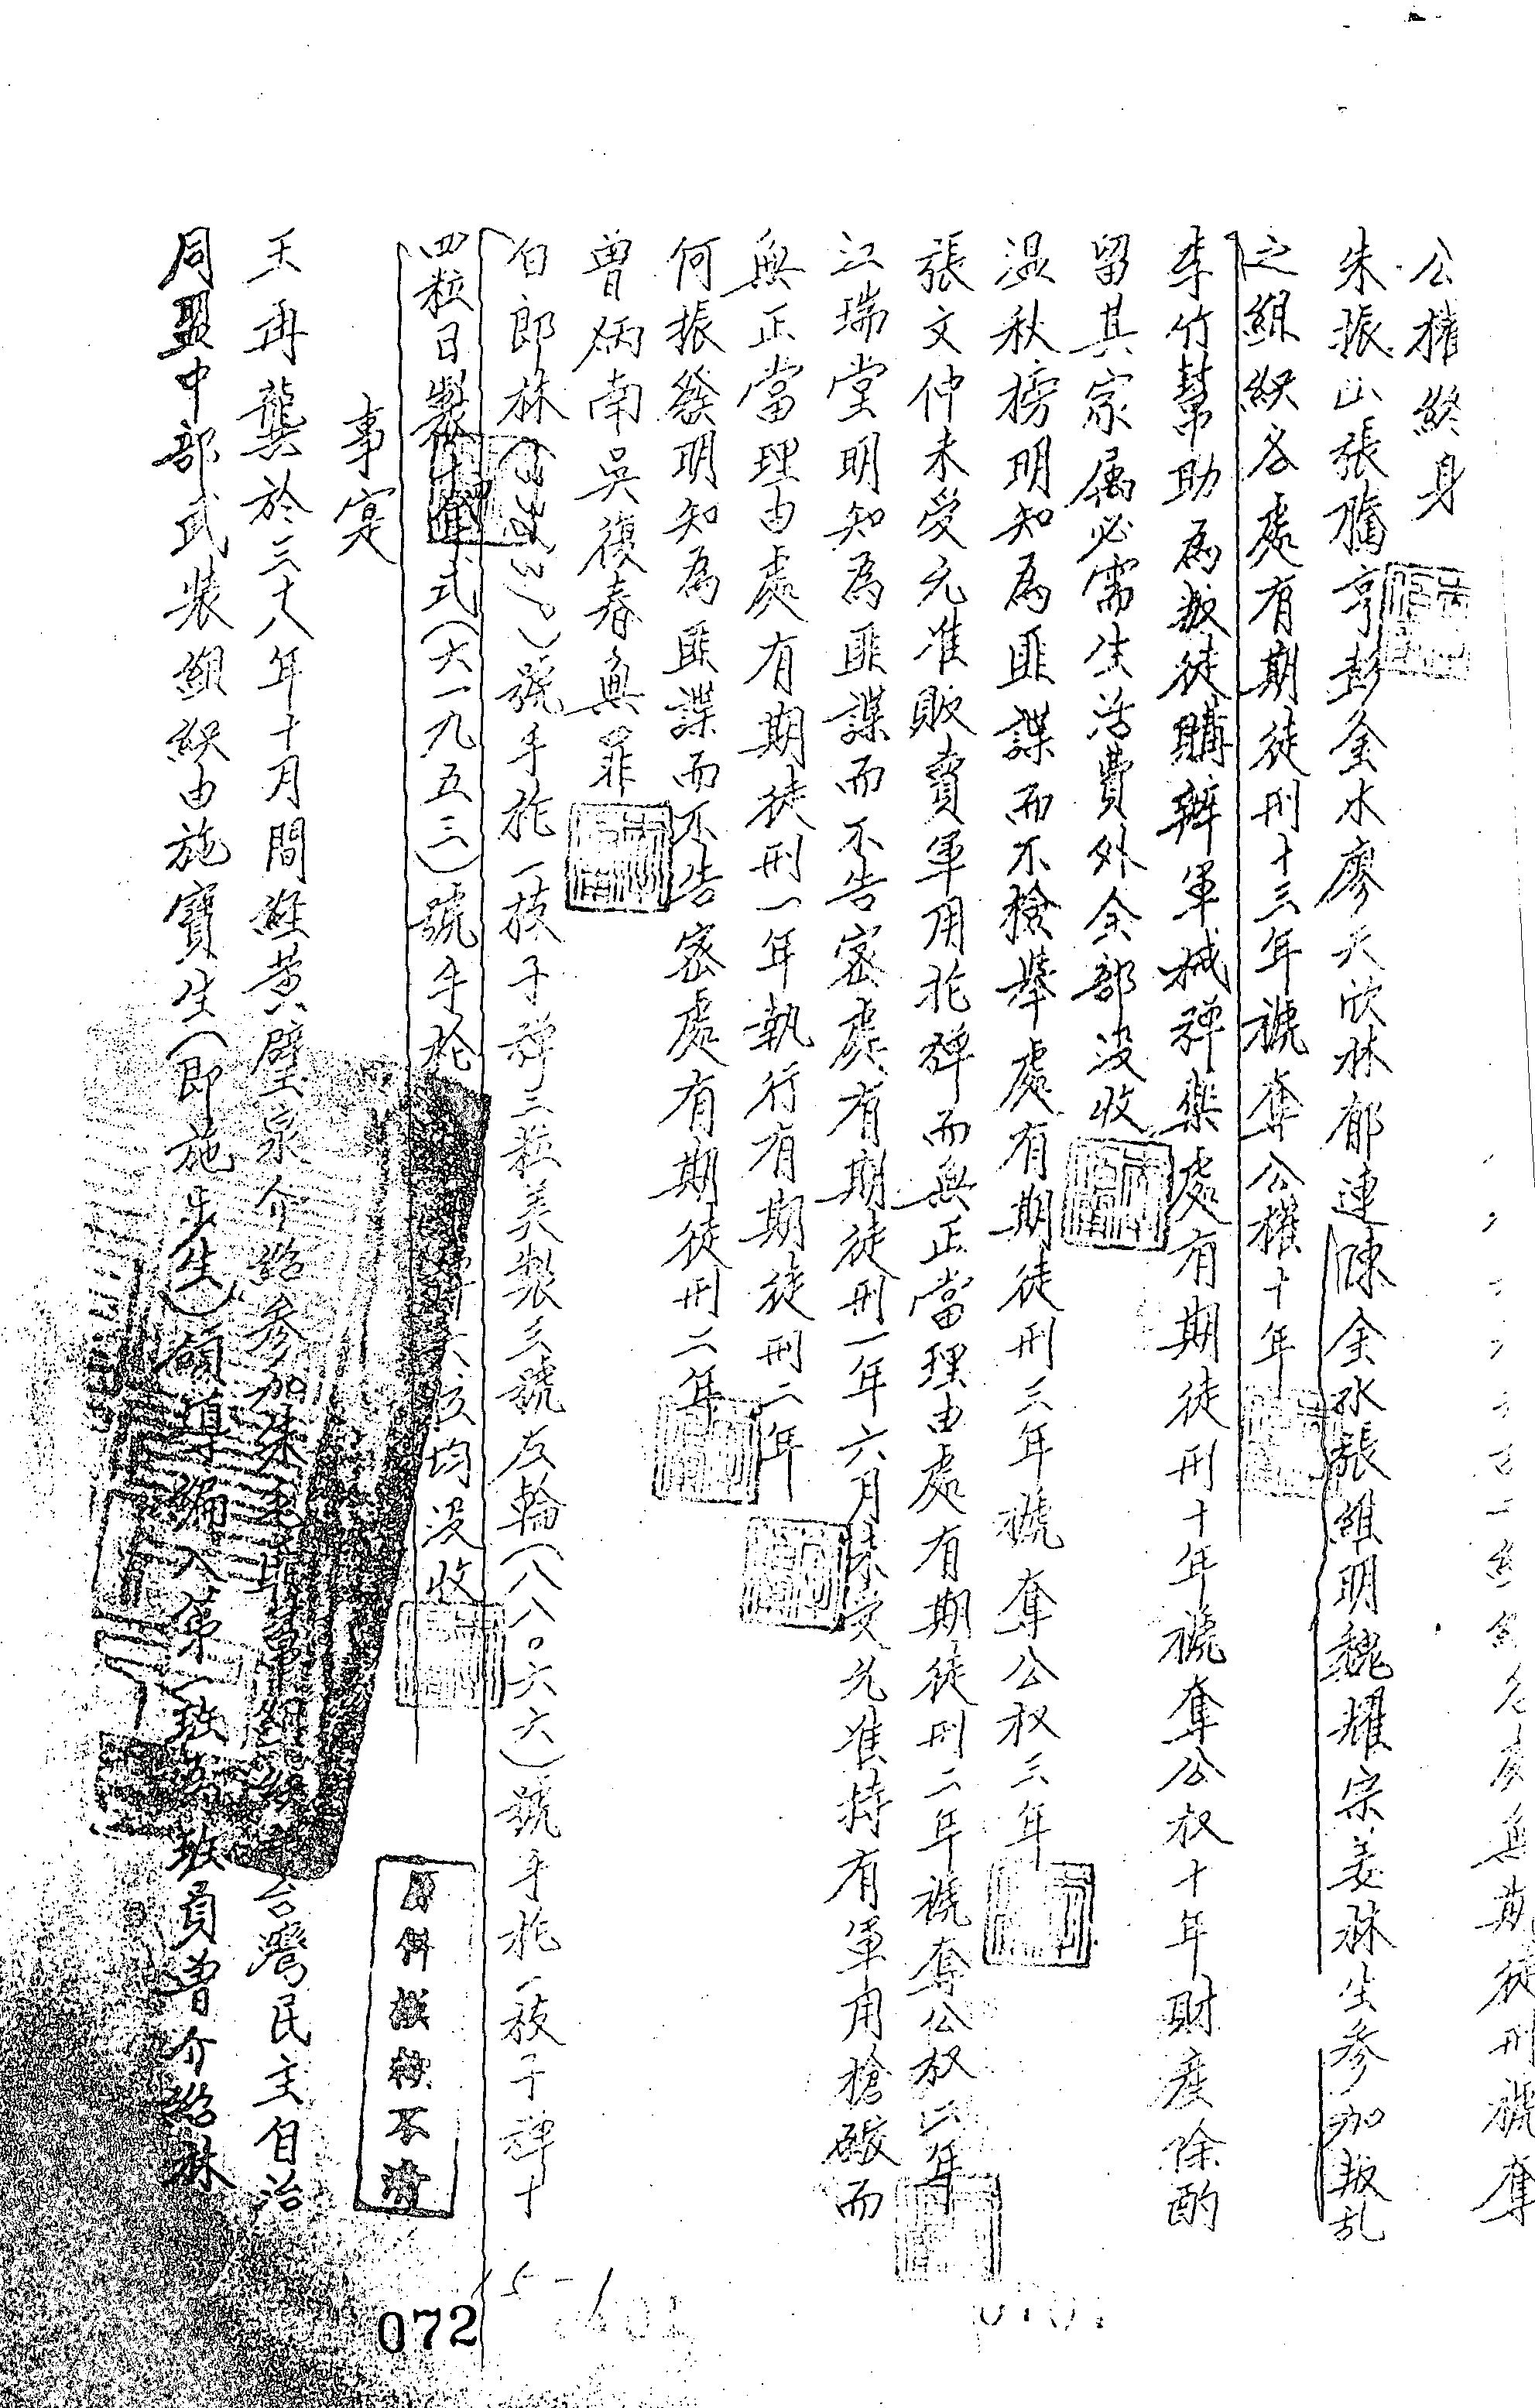 各處無期徒刑褫奪
公權終身
朱振山張騰亨彭金水廖天欣林郁連陳金水張維明魏耀宗姜林生参加叛乱
之組織各處有期徒刑十三年褫奪公權十年
李竹幫助為叛徒購辦軍械弹葯處有期徒刑十年褫奪公权十年財産除酌
留其家属必需生活費外全部没收
温秋榜明知為匪諜而不檢舉處有期徒刑三年褫奪公权三年
張文仲未受允准販賣軍用枪弹而無正當理由處有期徒刑二年褫奪公权二年
江瑞堂明知為匪諜而不告密處有期徒刑一年六月未受允准持有軍用槍礮而
無正當理由處有期徒刑一年執行有期徒刑二年
何振發明知為匪諜而不告密處有期徒刑二年
曽炳南吳復春無罪
白郎林號手枪一枝子弹三粒美製三號左輪(八八〇六六)號手枪一枝子弹十
四粒日製十四年式(六一九五三)號手枪六粒均没收
事实
王再龔於三十八年十月間經黄璧泉介紹参加朱毛匪幫組織台灣民主自治
同盟中部武装組織由施寶生(即施步生)領導編入第一班為班員曽介紹林
原件模糊不清
072